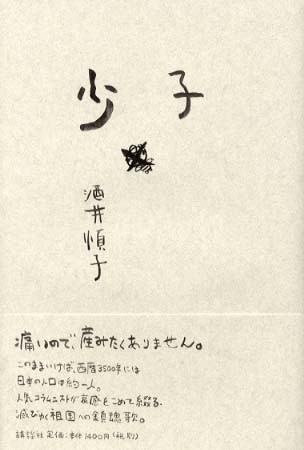 少子
酒井順子
痛いので、産みたくありません。
このままいけば、西暦3500年には
日本の人口は約一人。
人気コラムニストが哀感をこめて綴る、
滅びゆく祖国への鎮魂歌。
講談社 定価:本体1400円(税別)